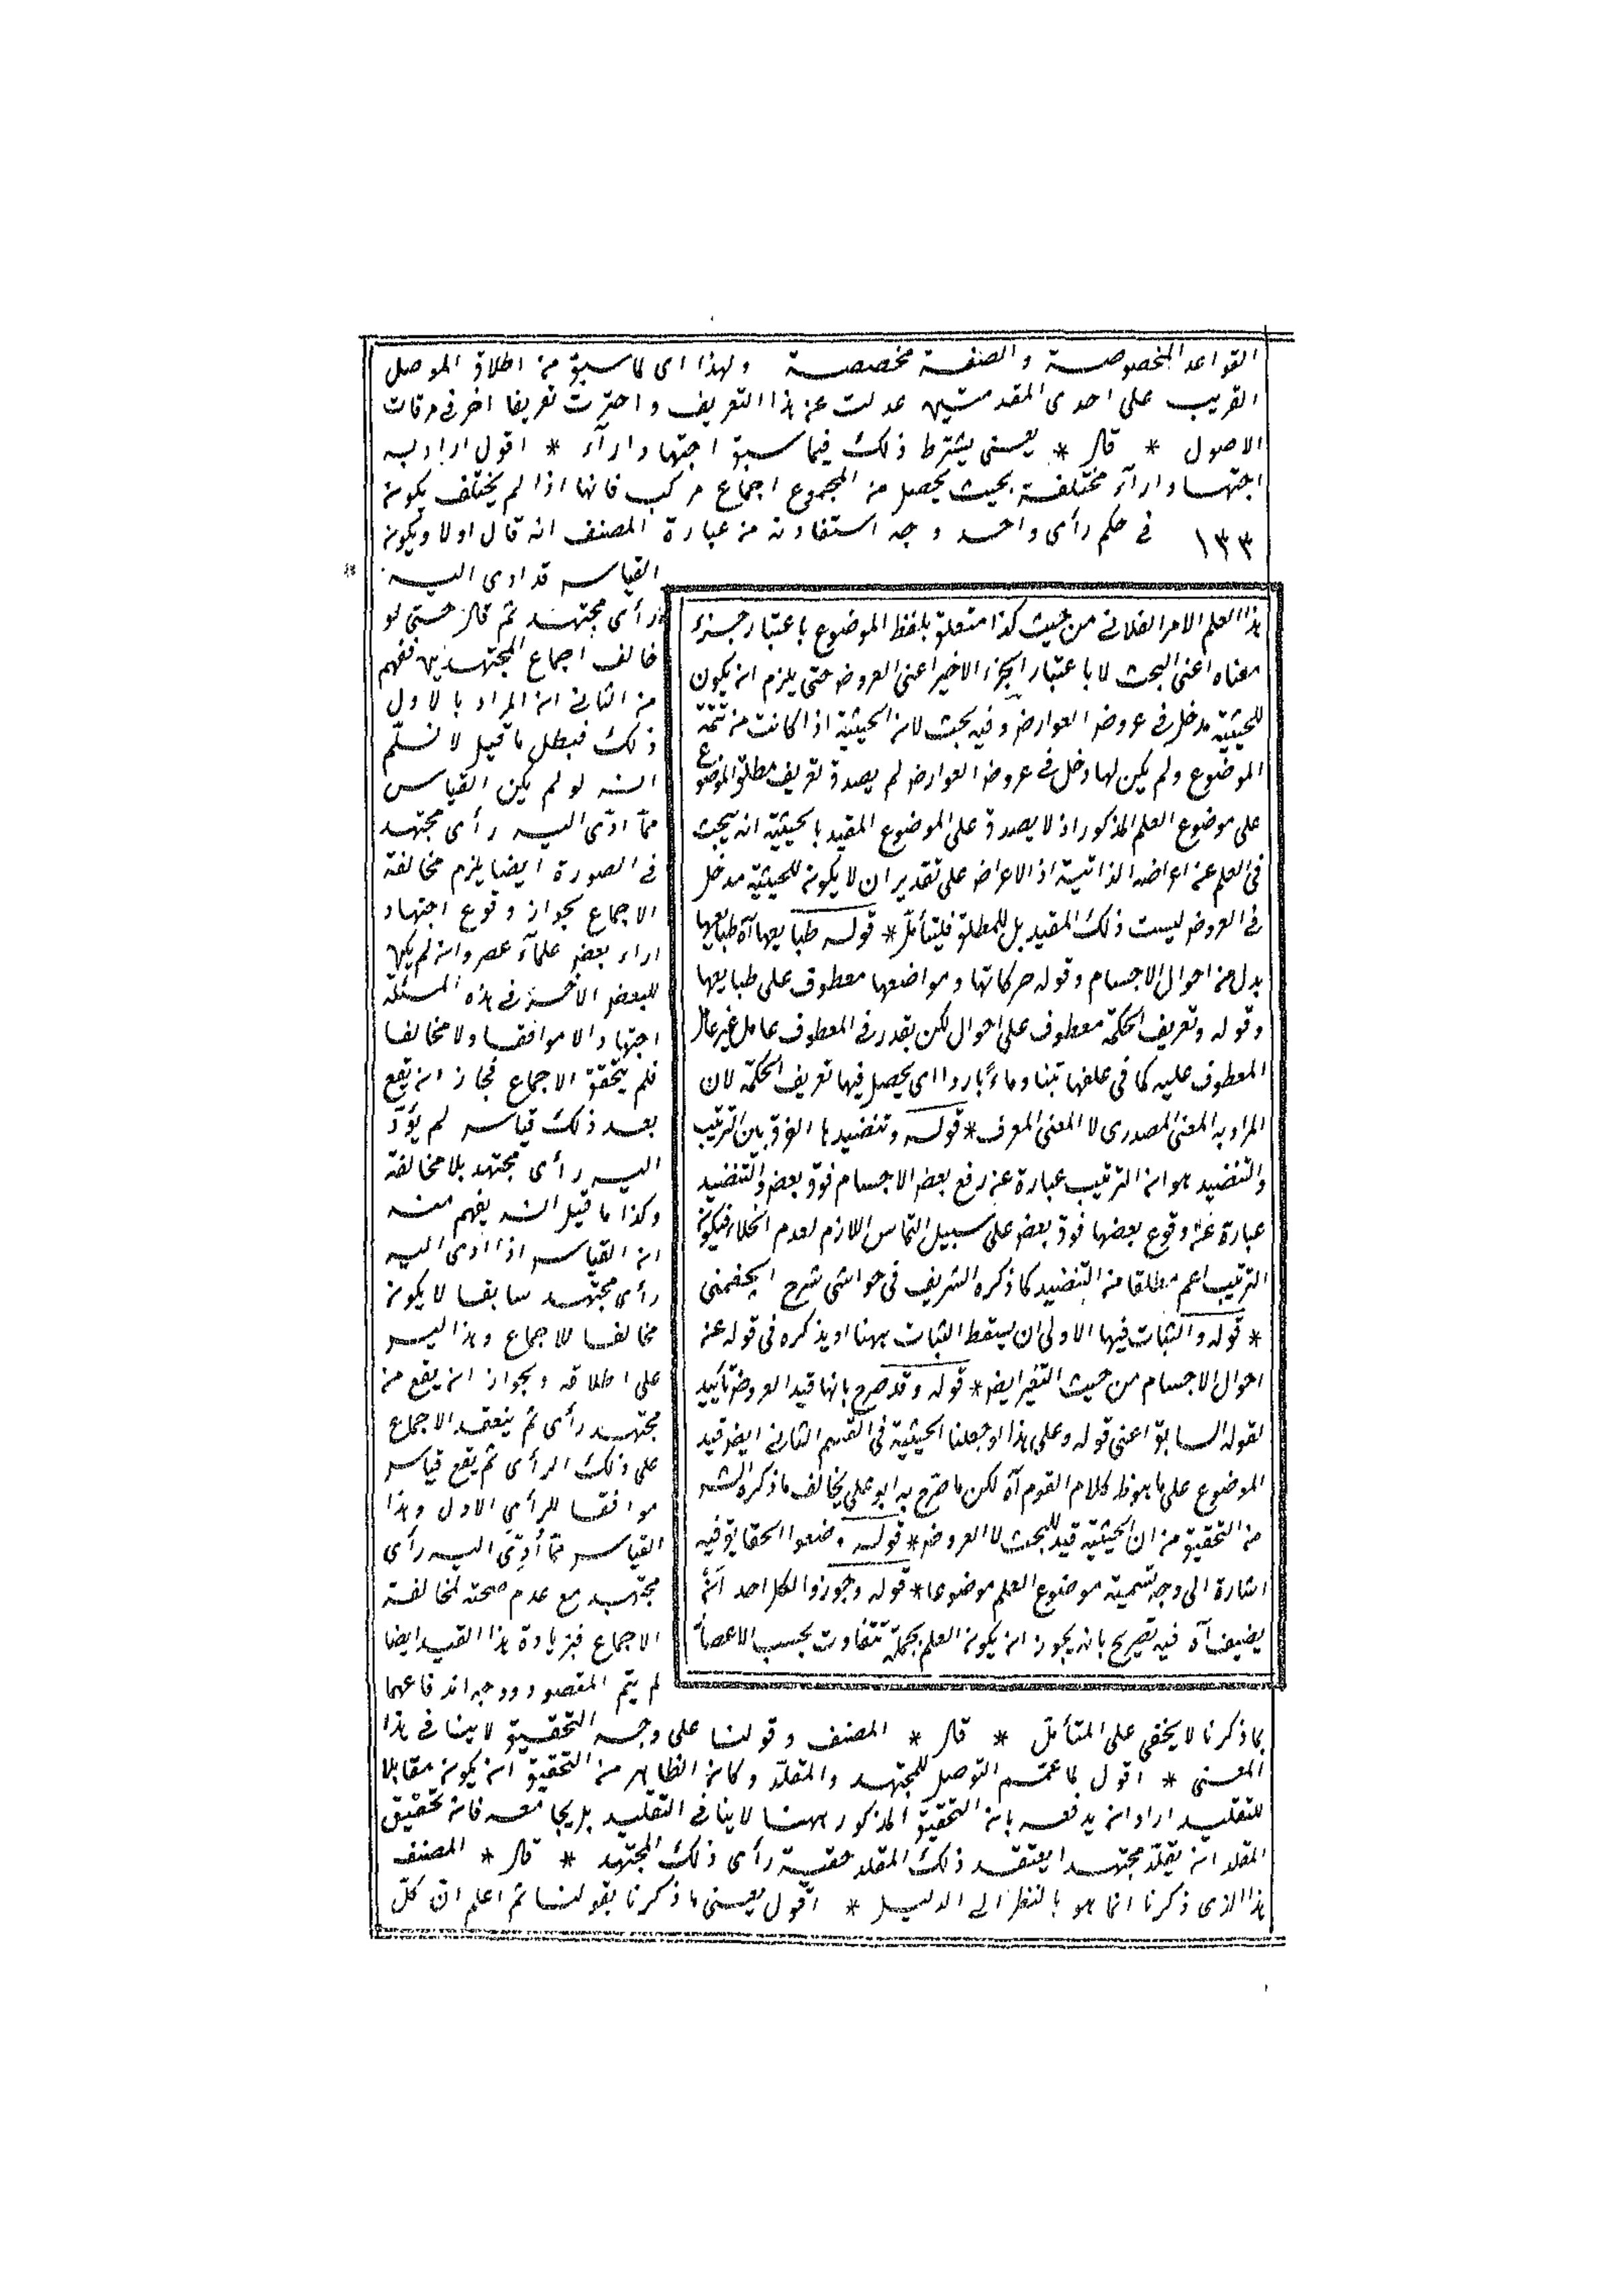 القواعد المخصوصة والصفة مخصصة ولهذا اى لما سبق من اطلاق الموصل
القريب على احدى المقدمتين عدلت عن هذا التعريف واخترت تعريفا اخر فى مرقات
الاصول * قال * يعنى يشترط ذلك فيما سبق اجتهاد اراء * اقول اراد به
اجتهاد اراء مختلفة بحيث يحصل من المجموع اجماع مركب فانها اذا لم يختلف يكون
١٣٣ فى حكم رأى واحد وجه استفادته من عبارة المصنف انه قال اولا ويكون
القياس قد ادى اليه
رأى مجتهد ثم قال حتى لو
خالف اجماع المجتهدين ففهم
من الثانى ان المراد بالاول
ذلك فبطل ما قيل لا نسلم
انه لو لم يكن القياس
مما ادى اليه رأى مجتهد
فى الصورة ايضا يلزم مخالفة
الاجماع لجواز وقوع اجتهاد
اراء بعض علماء عصر وان لم يكن
للبعض الاخر فى هذه المسئلة
اجتهاد لا موافقا ولا مخالفا
فلم يتحقق الاجماع فجاز ان يقع
بعد ذلك قياس لم يؤد
اليه رأى مجتهد بلا مخالفة
وكذا ما قيل انه يفهم منه
ان القياس اذا ادى اليه
رأى مجتهد سابقا لا يكون
مخالفا للاجماع وهذا ليس
على اطلاقه ويجواز ان يقع من
مجتهد رأى ثم ينعقد الاجماع
على ذلك الرأى ثم يقع قياس
موافقا للرأى الاول وهذا
القياس مما أدى اليه رأى
مجتهد مع عدم صحته لمخالفة
الاجماع فبزيادة هذا القيد ايضا
لم يتم المقصود ووجه اندفاعهما
بما ذكرنا لا يخفى على المتأمل * قال * المصنف وقولنا على وجه التحقيق لا ينافى هذا
المعنى * اقول لما عمم التوصل للمجتهد والمقلد وكان الظاهر من التحقيق ان يكون مقابلا
للتقليد اراد ان يدفعه بان التحقيق المذكور ههنا لا ينافى التقليد بل يجامعه فان تحقيق
المقلد ان يقلد مجتهدا يعتقد ذلك المقلد حقية رأى ذلك المجتهد * قال * المصنف
هذا الذى ذكرنا انما هو بالنظر الى الدليل * اقول يعنى ما ذكرنا بقولنا ثم اعلم ان كل
هذا العلم الامر الفلانى من حيث كذا متعلق بلفظ الموضوع باعتبار جزء
معناه اعنى البحث لا باعتبار الجزء الاخير اعنى العروض حتى يلزم ان يكون
للحيثية مدخل فى عروض العوارض وفيه بحث لان الحيثية اذا كانت من تتمة
الموضوع ولم يكن لها دخل فى عروض العوارض لم يصدق تعريف مطلق الموضوع
على موضوع العلم المذكور اذ لا يصدق على الموضوع المقيد بالحيثية انه يبحث
فى العلم عن اعراضه الذاتية اذ الاعراض على تقدير ان لا يكون للحيثية مدخل
فى العروض ليست ذلك المقيد بل للمطلق فليتأمل * قوله طبايعها آه طبايعها
بدل من احوال الاجسام وقوله حركاتها ومواضعها معطوف على طبايعها
وقوله وتعريف الحكمة معطوف على احوال لكن بقدر فى المعطوف عامل غير عامل
المعطوف عليه كما فى علفها تبنا وماءً باردا اى يحصل فيها تعريف الحكمة لان
المراد به المعنى المصدرى لا المعنى المعرف * قوله وتنضيدها الفرق بين الترتيب
والتنضيد هو ان الترتيب عبارة عن رفع بعض الاجسام فوق بعض والتنضيد
عبارة عن وقوع بعضها فوق بعض على سبيل التماس اللازم لعدم الخلاء فيكون
الترتيب اعم مطلقا من التنضيد كما ذكره الشريف فى حواشى شرح الجغمنى
* قوله والثبات فيها الاولى ان يسقط الثبات ههنا او يذكره فى قوله عن
احوال الاجسام من حيث التغير ايضا * قوله وقد صرح بانها قيد العروض تأييد
لقوله السابق اعنى قوله وعلى هذا لو جعلنا الحيثية فى القسم الثانى ايضا قيد
الموضوع على ما هو ظ كلام القوم آه لكن ما صرح به ابو على يخالف ما ذكره الشه
من التحقيق من ان الحيثية قيد للبحث لا العروض * قوله وضعوا الحقايق فيه
اشارة الى وجه تسمية موضوع العلم موضوعا * قوله وجوزوا لكل احد ان
يضيف آه فيه تصريح بانه يجوز ان يكون العلم بجملته تتفاوت بحسب الاعصار